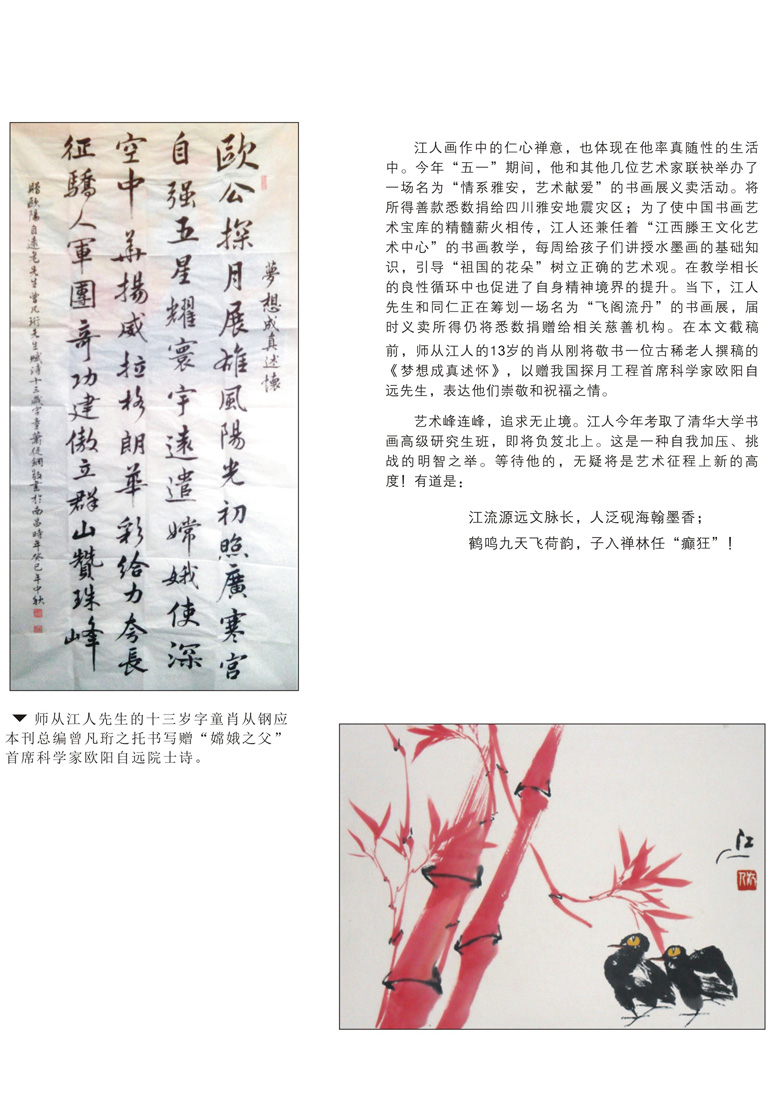 夢想成真述懷
歐公探月展雄風陽光初照廣寒宮
自强五星耀寰宇遠遣嫦娥使深
空中華揚威拉格朗華彩給力夸長
征驕人軍團奇功建傲立群山贊珠峰
贈歐陽自遠先生曾凡珩先生賦詩十三歲字童蕭從鋼敬書於南昌時年癸巳年中秋
▼ 师从江人先生的十三岁字童肖从钢应
本刊总编曾凡珩之托书写赠“嫦娥之父”
首席科学家欧阳自远院士诗。
江人画作中的仁心禅意，也体现在他率真随性的生活
中。今年“五一”期间，他和其他几位艺术家联袂举办了
一场名为“情系雅安，艺术献爱”的书画展义卖活动。将
所得善款悉数捐给四川雅安地震灾区；为了使中国书画艺
术宝库的精髓薪火相传，江人还兼任着“江西滕王文化艺
术中心”的书画教学，每周给孩子们讲授水墨画的基础知
识，引导“祖国的花朵”树立正确的艺术观。在教学相长
的良性循环中也促进了自身精神境界的提升。当下，江人
先生和同仁正在筹划一场名为“飞阁流丹”的书画展，届
时义卖所得仍将悉数捐赠给相关慈善机构。在本文截稿
前，师从江人的13岁的肖从刚将敬书一位古稀老人撰稿的
《梦想成真述怀》，以赠我国探月工程首席科学家欧阳自
远先生，表达他们崇敬和祝福之情。
艺术峰连峰，追求无止境。江人今年考取了清华大学书
画高级研究生班，即将负笈北上。这是一种自我加压、挑
战的明智之举。等待他的，无疑将是艺术征程上新的高
度！有道是：
江流源远文脉长，人泛砚海翰墨香；
鹤鸣九天飞荷韵，子入禅林任“癫狂”！
江人